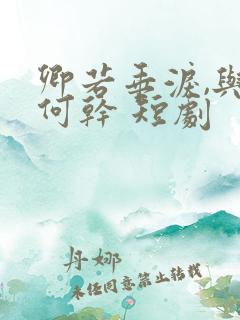 卿若垂淚,與
何幹 短劇
丹娜
未經同意禁止轉載